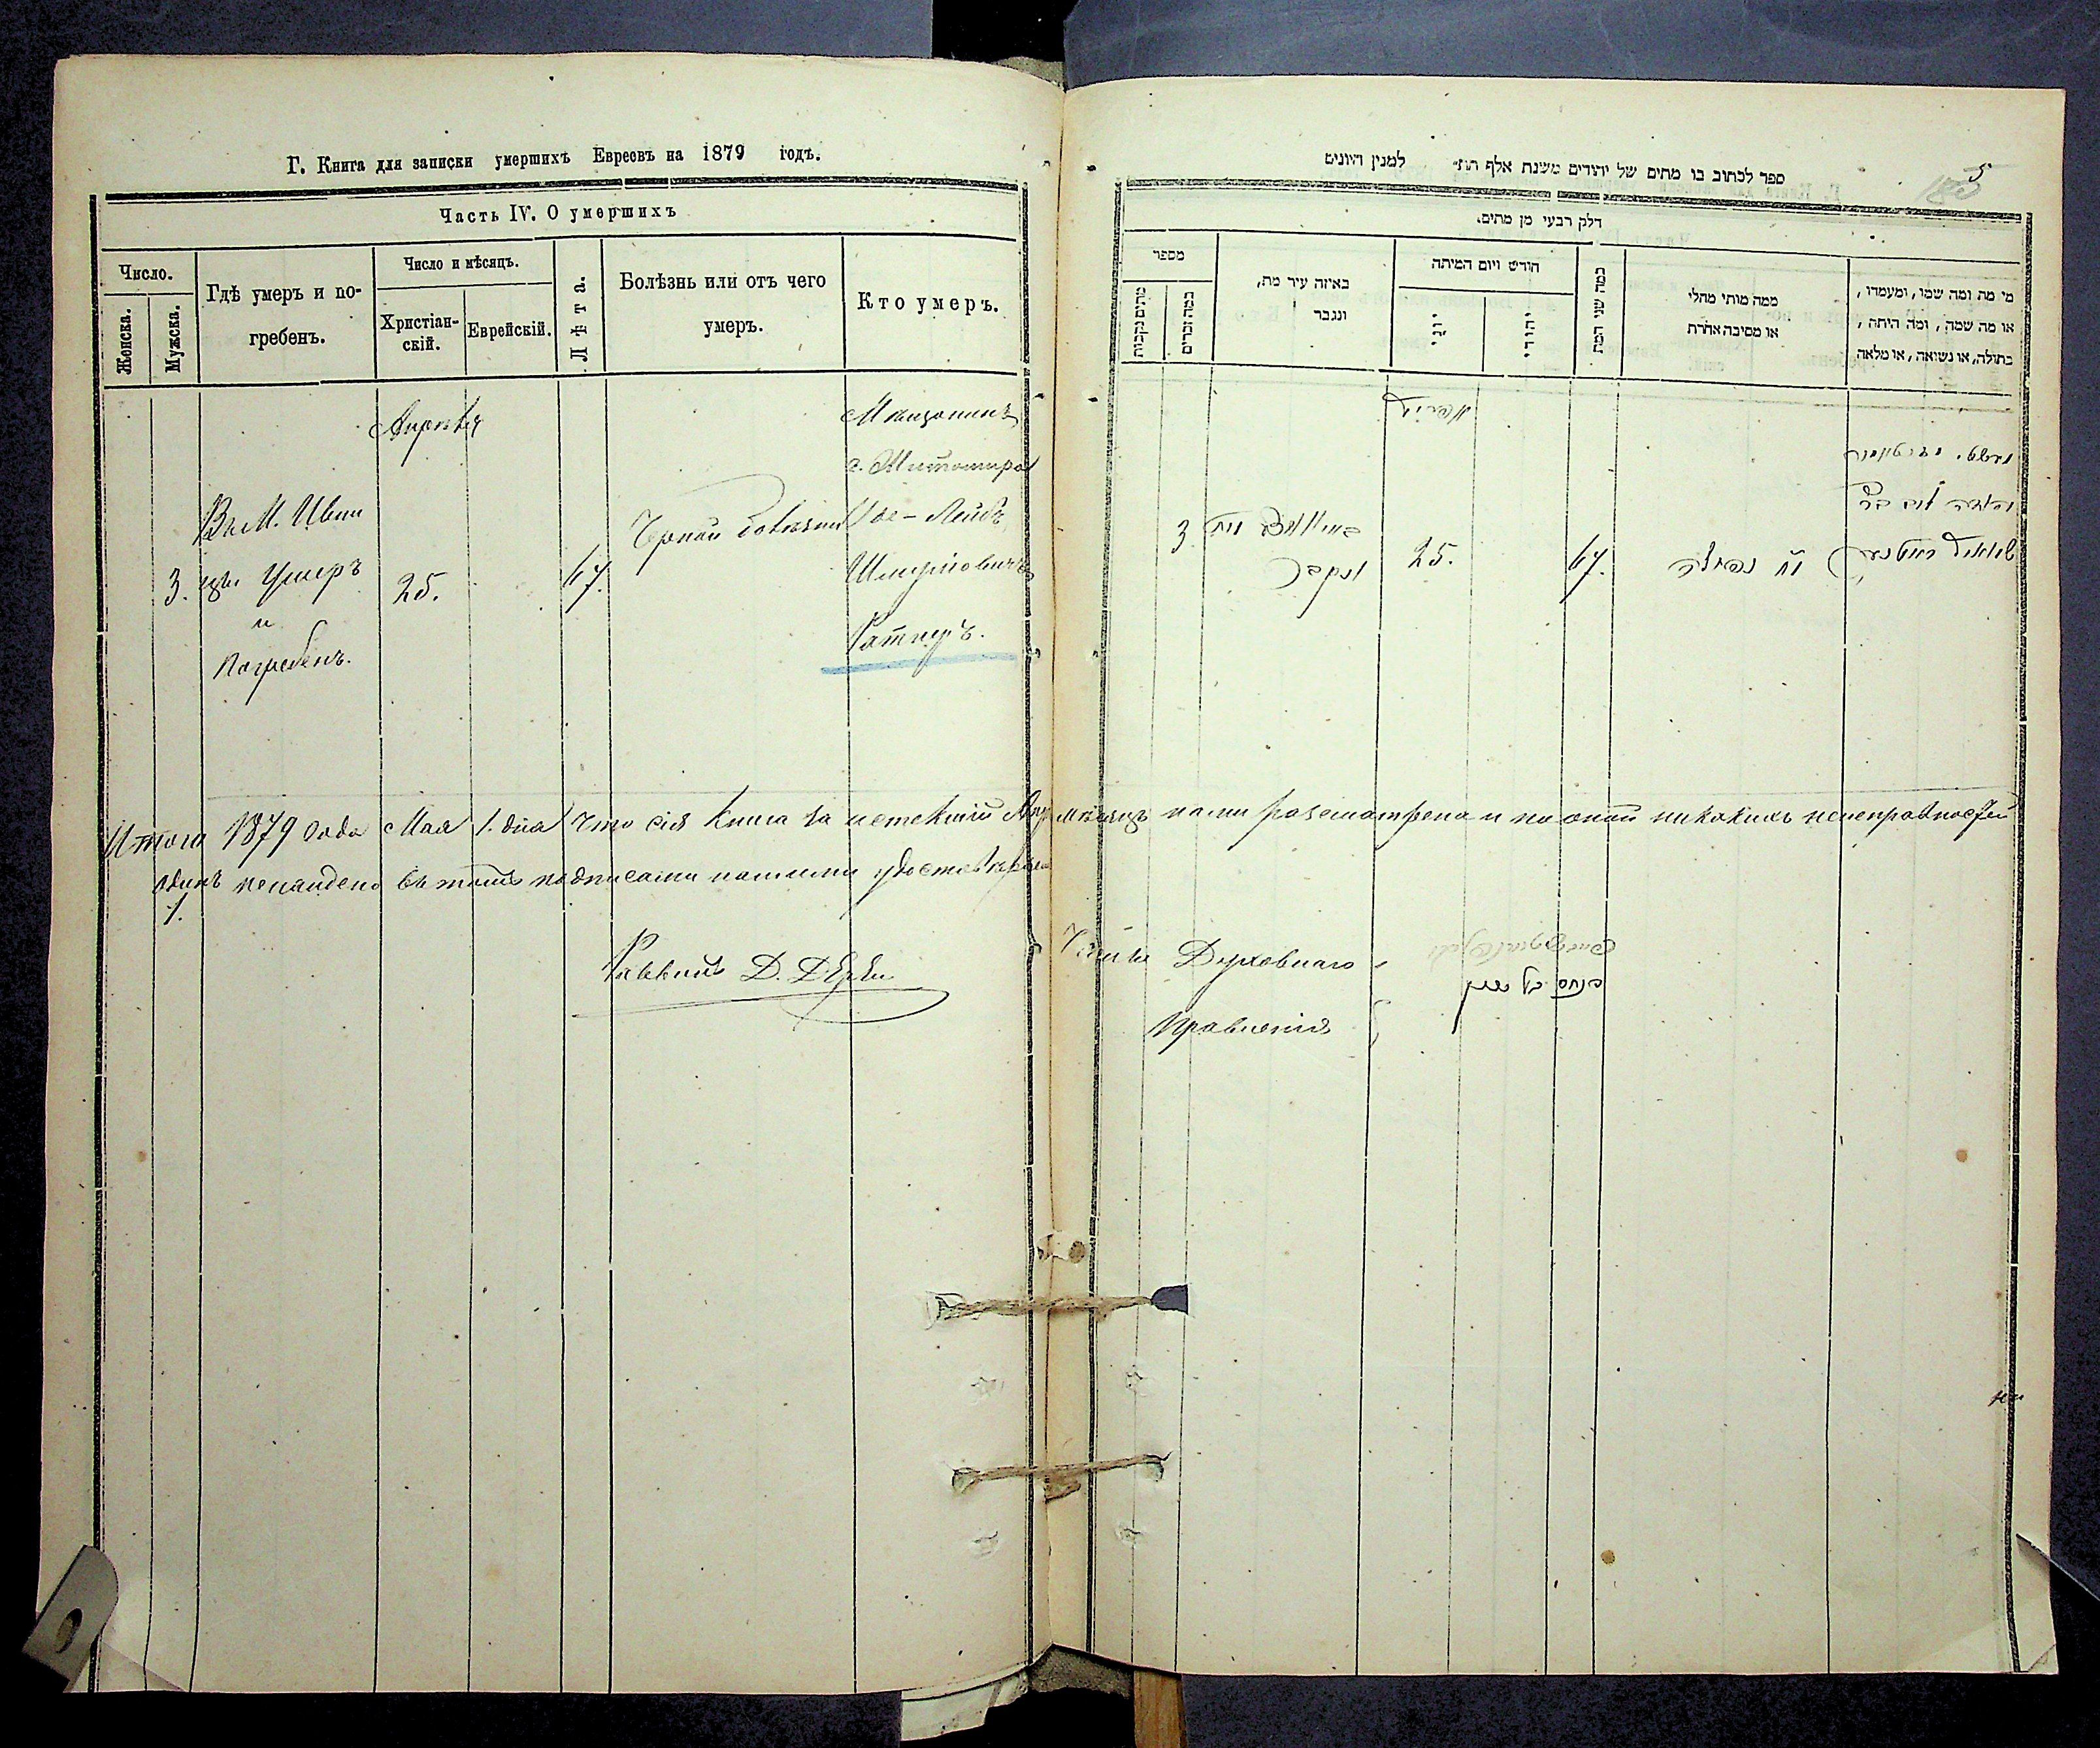 Г. Книга для записки умершихъ Евреевъ на 1879 годъ.
Часть IV. О умершихъ
Число.
Женска.
Мужска.
Гдѣ умеръ и по-
гребенъ.
Число и мѣсяцъ.
Христіан-
скій.
Еврейскій.
Лѣта.
Болѣзнь или отъ чего
умеръ.
Кто умеръ.
3.
Въ М. Ивни
цы умеръ
и
погребенъ.
Апрѣля
25.
67.
Грудной болѣзни
Мѣщанинъ
г. Житомира
Іос-Лейбъ
Шмуліовичъ
Ратнеръ.
Итого 1879 года Мая 1. дня Что сія книга за истекшій Апр. мѣсяцъ нами разсмотрена и по оной никакихъ неисправностей
одинъ ненайдено въ томъ подписами нашими удостовѣряемъ
1.
Раввинъ Д.
Члены Духовнаго
Правленія
ספר לכתוב בו מתים של יהודים משנת אלף תת״ למנין היונים
5
חלק רבעי מן מתים.
מספר
מתים נקבות
כמה זכרים
באיזה עיר מת,
ונגבר
חודש ויום המיתה
יוני
יהודי
כמה שני המת
ממה מותי מחלי
או מסיבה אחרת
מי מת ומה שמו, ומעמדו,
או מה שמה, ומה היתה,
בתולה, או נשואה, או מלאה
3
אפריל
ונקבר
25.
67.
שמואל ראטנער